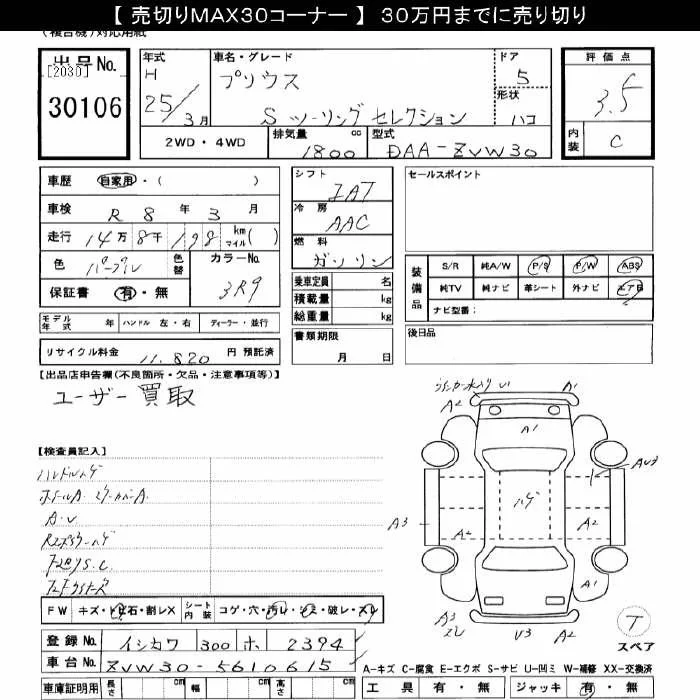 【 売切りMAX30コーナー 】 30万円までに売り切り
(複合機)対応用紙
出品No. [2030] 30106
年式 H 25/3月
車名・グレード プリウス
S ツーリング セレクション
ドア 5
形状 ハコ
評価点 3.5
内装 C
2WD・4WD 排気量 1800 cc 型式 DAA-ZVW30
車歴 自家用・( )
車検 R 8 年 3 月
走行 14万 8千 198 km マイル( )
色 パープル 色替 カラーNo. 3R9
保証書 有・無
モデル年式 年 ハンドル 左・右 ディーラー・並行
リサイクル料金 11,820 円 預託済
シフト IAT
冷房 AAC
燃料 ガソリン
乗車定員 名
積載量 kg
総重量 kg
書類期限 月 日
セールスポイント
装備品 S/R 純A/W P/S P/W ABS
純TV 純ナビ 革シート 外ナビ エアB
ナビ型番:
後日品
【出品店申告欄(不良箇所・欠品・注意事項等)】
ユーザー買取
【検査員記入】
ハンドルハゲ
A.U
FW キズ・飛石・割レX シート内装 コゲ・穴・汚レ・シミ・破レ・スレ
登録No. イシカワ 300 ホ 2394
車台No. ZVW30-5610615
車庫証明用 長さ cm 幅 cm 高さ cm
A1
A2
A1
A2
A1
AU3
ハゲ
A3
A2
A2
A2
A1
A3
スレ
U3
A2
T
スペア
A-キズ C-腐食 E-エクボ S-サビ U-凹ミ W-補修 XX-交換済
工具 有・無 ジャッキ 有・無